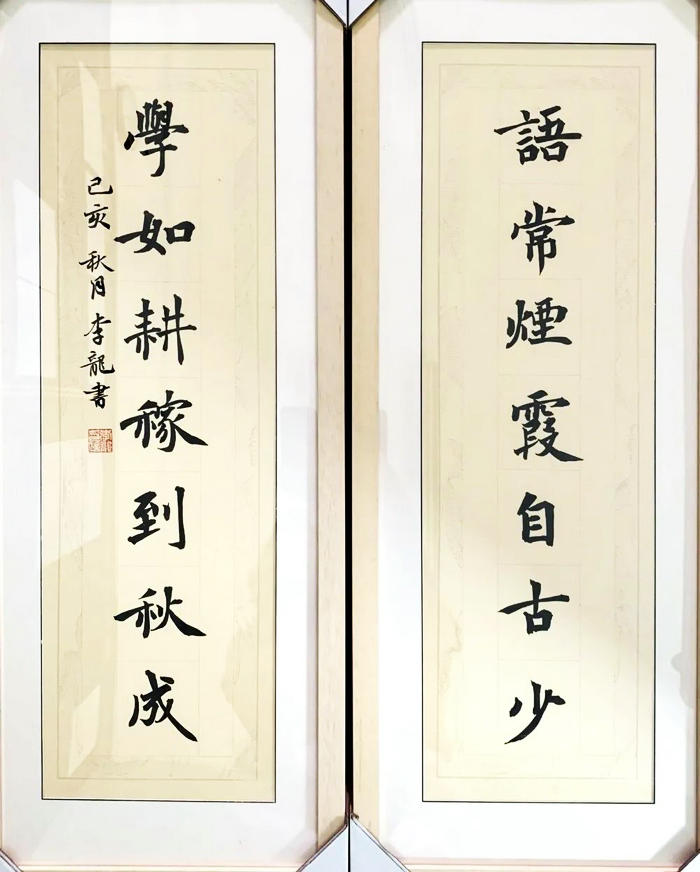 語常煙霞自古少
學如耕稼到秋成
己亥 秋月 李龍書